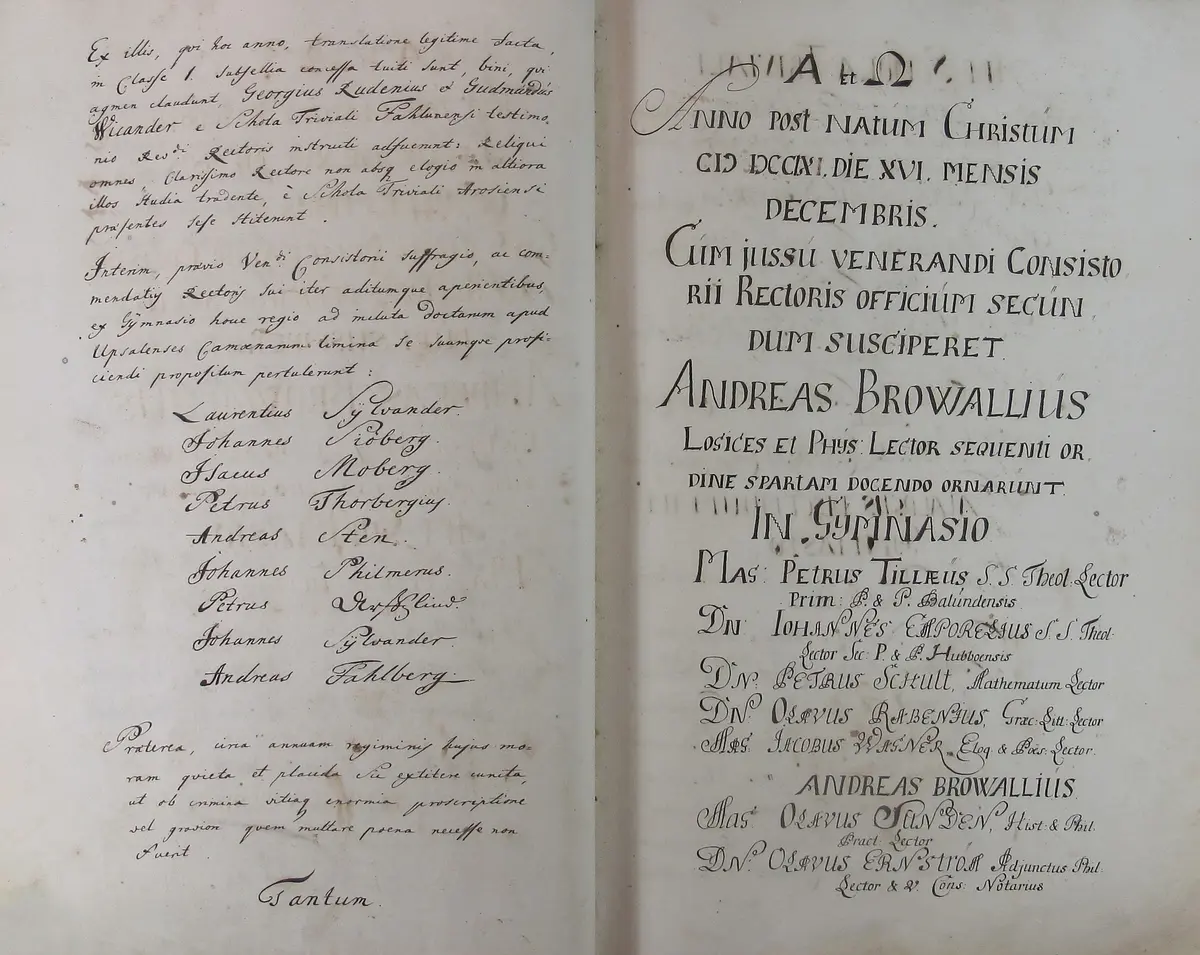 Ex illis, qvi hoc anno, translatione legitime facta,
in Classe I. subsellia concessa tuiti sunt, bini, qvi
agmen claudunt, Georgius Rudenius & Gudmundus
Wicander e Schola Triviali Fahlunensi testimo-
nio Revdi Rectoris instructi adfuerunt: Reliqui
omnes, Clarissimo Rectore non absq elogio in altiora
illos studia tradente, è Schola Triviali Arosiensi
præsentes sese stiterunt.
Interim, prævio Vendi Consistorii suffragio, ac com-
mendatiis Rectoris sui iter aditumque aperientibus,
ex Gÿmnasio hocce regio ad incluta doctarum apud
Upsalenses Camœnarum limina se suumqve profi-
ciendi propositum pertulerunt:
Laurentius Sÿlvander.
Johannes Siöberg.
Isacus Moberg.
Petrus Thorbergius.
Andreas Sten.
Johannes Philmerus.
Petrus
Johannes Sÿlvander.
Andreas Fahlberg.
Præterea, circa annuam regiminis hujus mo-
ram qvieta et placida sic extitere cuncta,
ut ob crimina vitiaq enormia proscriptione
vel graviori quem multare poena necesse non
fuerit.
Tantum.
A et Ω
Anno post natum Christum
CIↃ DCCLXI. DIE XVI. MENSIS
DECEMBRIS.
Cum jussu venerandi Consisto
rii Rectoris officium secun
dum susciperet
Andreas Browallius
Logices et Phys: Lector sequenti or
dine spartam docendo ornarunt
In Gymnasio
Mag: Petrus Tillæus S. S. Theol: Lector
Prim: P. & P. Balundensis
Dn: Iohannes Emporelius S. S. Theol:
Lector Sec: P. & P. Hubboensis
Dn: Petrus Schult, Mathematum Lector
Dn: Olavus Rabenius, Græc: Litt: Lector
Mag: Jacobus Wagner, Eloq: & Poës: Lector.
Andreas Browallius
Mag: Olavus Sundén, Hist: & Phil.
Pract: Lector
Dn: Olavus Ernström Adjunctus Phil:
Lector & V. Cons: Notarius